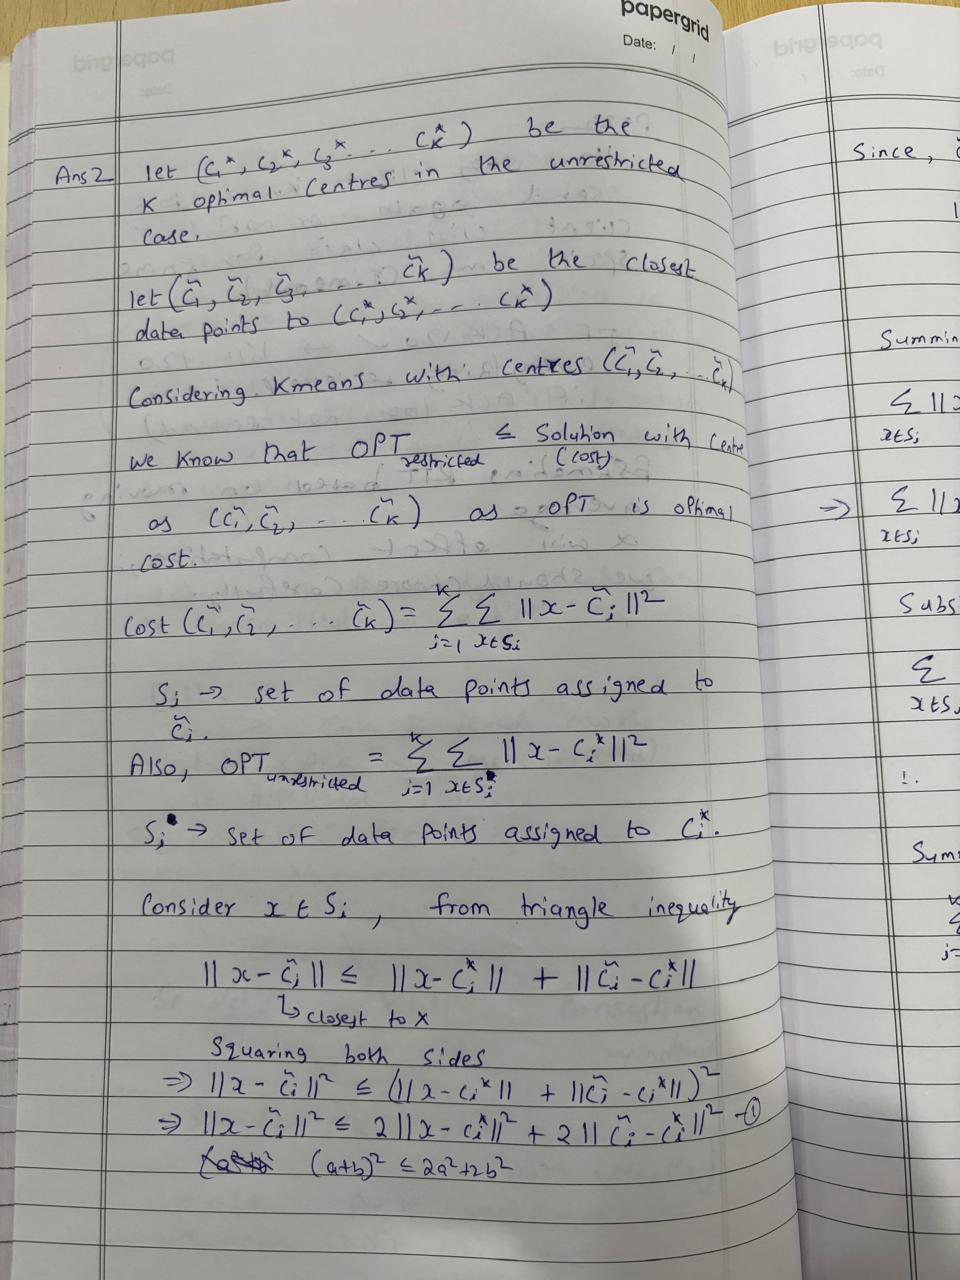 papergrid
Date: / /
Ans 2 let (C₁*, C₂*, C₃* ... C_K*) be the
K optimal centres in the unrestricted
case.
let (C̃₁, C̃₂, C̃₃, ... C̃_K) be the closest
data points to (C₁*, C₂*, ... C_K*)
Considering Kmeans with centres (C̃₁, C̃₂, ... C̃_K)
we know that OPT_restricted ≤ Solution with centre
(cost)
as (C̃₁, C̃₂, ... C̃_K) as OPT is optimal
cost.
Cost (C̃₁, C̃₂, ... C̃_K) = Σ_{i=1}^{K} Σ_{x∈S_i} ||x - C̃_i||²
S_i → set of data points assigned to
C̃_i.
Also, OPT_unrestricted = Σ_{i=1}^{K} Σ_{x∈S_i} ||x - C_i*||²
S_i → set of data points assigned to C_i*.
Consider x ∈ S_i, from triangle inequality
||x - C̃_i|| ≤ ||x - C_i*|| + ||C̃_i - C_i*||
↳ closest to x
Squaring both sides
⇒ ||x - C̃_i||² ≤ (||x - C_i*|| + ||C̃_i - C_i*||)²
⇒ ||x - C̃_i||² ≤ 2||x - C_i*||² + 2||C̃_i - C_i*||² - ①
(a+b)² ≤ 2a²+2b²
Since,
Σ ||x
x∈S_i
⇒ Σ ||x
x∈S_i
Σ